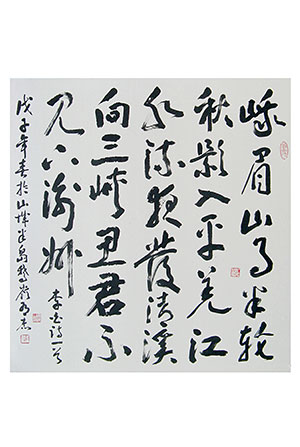 峨眉山月半轮
秋影入平羌江
水流夜發清溪
向三峡思君不
见下渝州
李白诗一首
戊子年春於山城半島鵝嶺